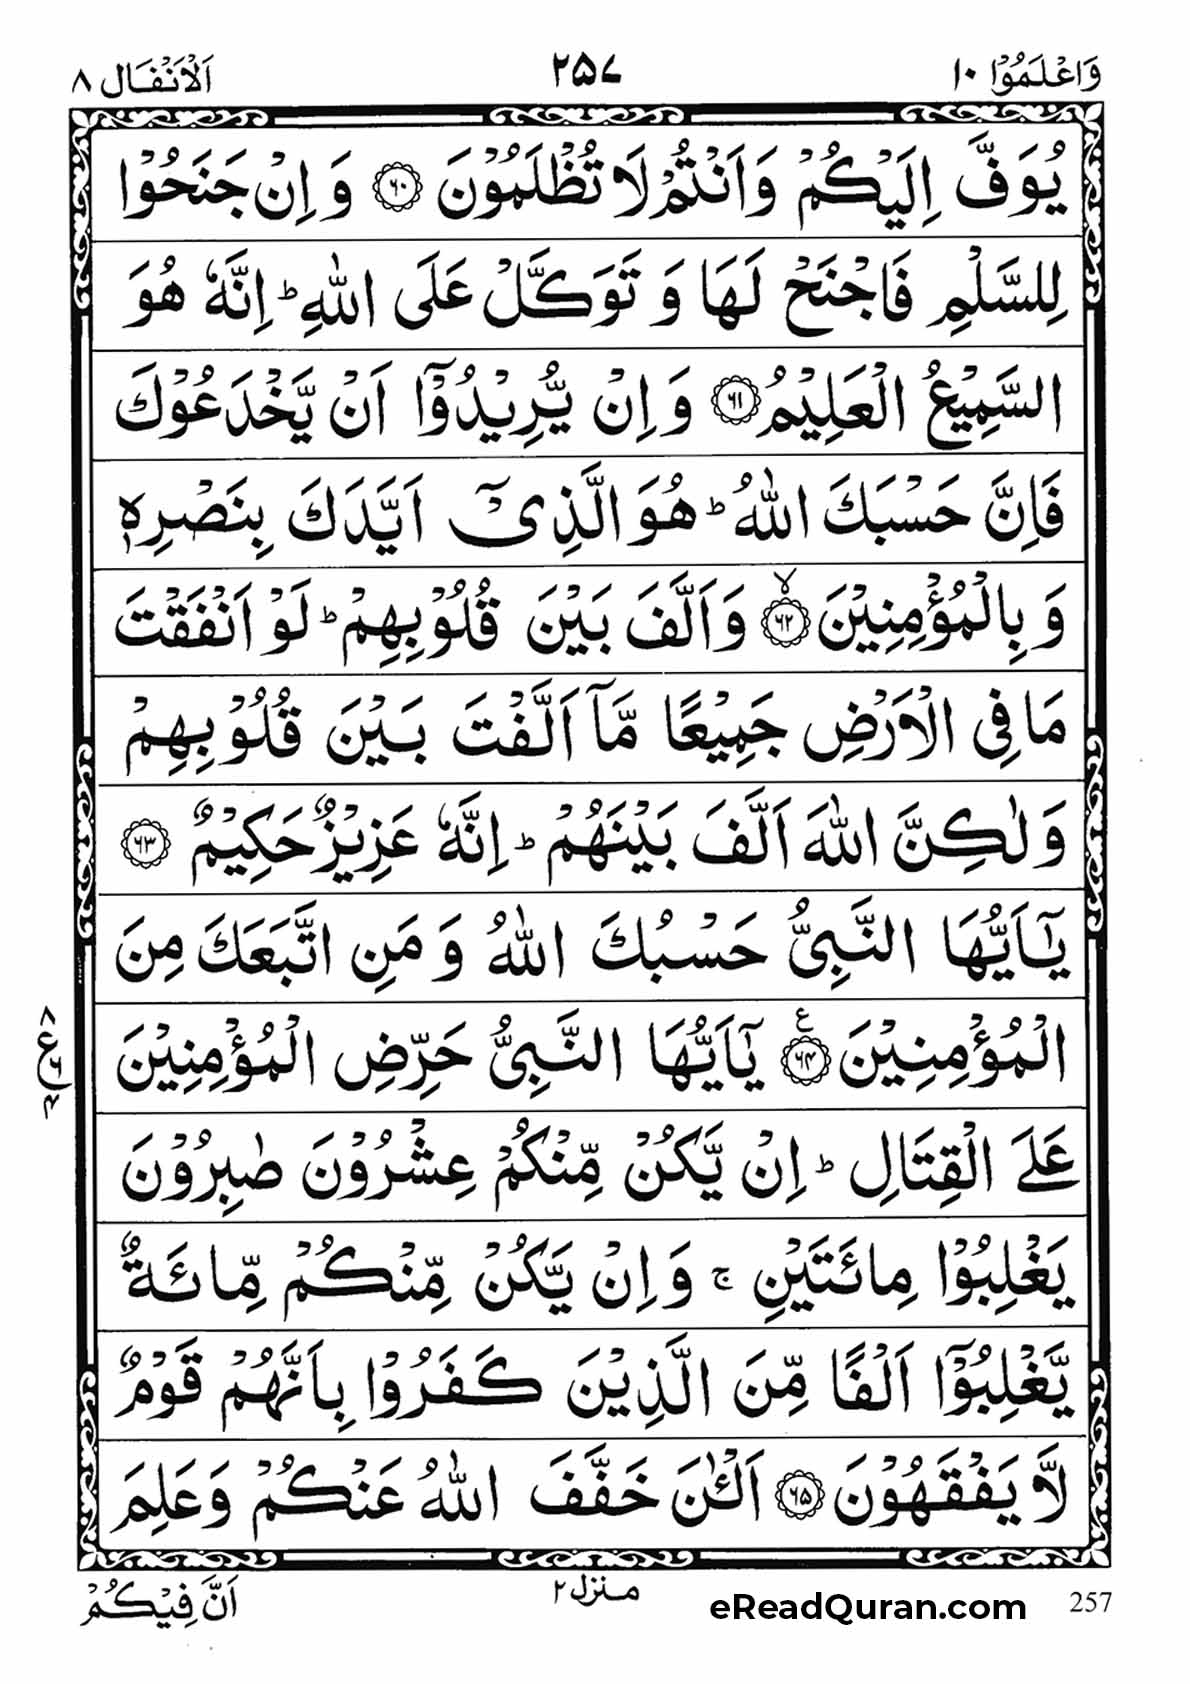 وَاعْلَمُوْۤا ۱۰
۲۵۷
اَلْاَنْفَال ۸
يُوَفَّ اِلَيْكُمْ وَاَنْتُمْ لَا تُظْلَمُوْنَ ﴿۶۰﴾ وَ اِنْ جَنَحُوْا
لِلسَّلْمِ فَاجْنَحْ لَهَا وَ تَوَكَّلْ عَلَى اللّٰهِ ؕ اِنَّهٗ هُوَ
السَّمِيْعُ الْعَلِيْمُ ﴿۶۱﴾ وَ اِنْ يُّرِيْدُوْۤا اَنْ يَّخْدَعُوْكَ
فَاِنَّ حَسْبَكَ اللّٰهُ ؕ هُوَ الَّذِيْۤ اَيَّدَكَ بِنَصْرِهٖ
وَ بِالْمُؤْمِنِيْنَ ﴿۶۲﴾ۙ وَاَلَّفَ بَيْنَ قُلُوْبِهِمْ ؕ لَوْ اَنْفَقْتَ
مَا فِي الْاَرْضِ جَمِيْعًا مَّاۤ اَلَّفْتَ بَيْنَ قُلُوْبِهِمْ
وَلٰكِنَّ اللّٰهَ اَلَّفَ بَيْنَهُمْ ؕ اِنَّهٗ عَزِيْزٌ حَكِيْمٌ ﴿۶۳﴾
يٰۤاَيُّهَا النَّبِيُّ حَسْبُكَ اللّٰهُ وَ مَنِ اتَّبَعَكَ مِنَ
الْمُؤْمِنِيْنَ ﴿۶۴﴾ع يٰۤاَيُّهَا النَّبِيُّ حَرِّضِ الْمُؤْمِنِيْنَ
عَلَى الْقِتَالِ ؕ اِنْ يَّكُنْ مِّنْكُمْ عِشْرُوْنَ صٰبِرُوْنَ
يَغْلِبُوْا مِائَتَيْنِ ۚ وَ اِنْ يَّكُنْ مِّنْكُمْ مِّائَةٌ
يَّغْلِبُوْۤا اَلْفًا مِّنَ الَّذِيْنَ كَفَرُوْا بِاَنَّهُمْ قَوْمٌ
لَّا يَفْقَهُوْنَ ﴿۶۵﴾ اَلْـٰٔنَ خَفَّفَ اللّٰهُ عَنْكُمْ وَعَلِمَ
اَنَّ فِيْكُمْ
منزل ۲
eReadQuran.com
257